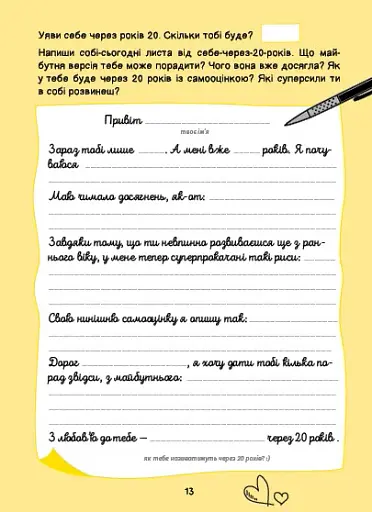 Уяви себе через років 20. Скільки тобі буде?
Напиши собі-сьогодні листа від себе-через-20-років. Що май-
бутня версія тебе може порадити? Чого вона вже досягла? Як
у тебе буде через 20 років із самооцінкою? Які суперсили ти
в собі розвинеш?
Привіт
твоє ім'я
Зараз тобі лише . А мені вже років. Я почу-
ваюся
Маю чимало досягнень, як-от:
Завдяки тому, що ти невпинно розвиваєшся ще з ран-
нього віку, у мене тепер суперпрокачані такі риси:
Свою нинішню самооцінку я опишу так:
Дорог , я хочу дати тобі кілька по-
рад звідси, з майбутнього:
З любов'ю до тебе – через 20 років.
як тебе називатимуть через 20 років? :)
13